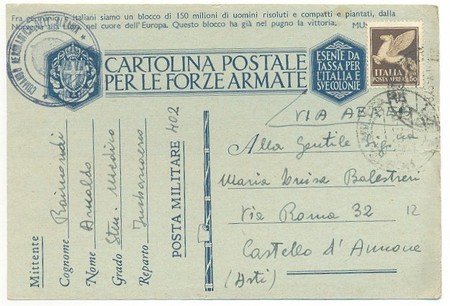 Fra germanici e italiani siamo un blocco di 150 milioni di uomini risoluti e compatti e piantati, dalla
nel cuore dell'Europa. Questo blocco ha già nel pugno la vittoria. MUS
CARTOLINA POSTALE
PER LE FORZE ARMATE
ESENTE DA
TASSA PER
L'ITALIA E
SVE COLONIE
ITALIA
POSTA AEREA
VIA AEREA
Alla Gentile
Maria Luisa Balestreri
Via Roma 32 12
Castello d'Annone
(Asti)
Mittente
Cognome Raimondi
Nome Arnaldo
Grado Sten. Medico
Reparto
POSTA MILITARE 402